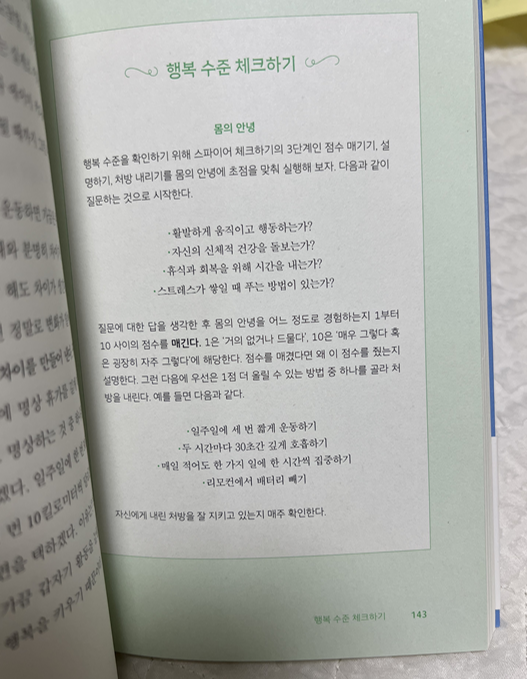 행복 수준 체크하기
몸의 안녕
행복 수준을 확인하기 위해 스파이어 체크하기의 3단계인 점수 매기기, 설
명하기, 처방 내리기를 몸의 안녕에 초점을 맞춰 실행해 보자. 다음과 같이
질문하는 것으로 시작한다.
·활발하게 움직이고 행동하는가?
·자신의 신체적 건강을 돌보는가?
·휴식과 회복을 위해 시간을 내는가?
·스트레스가 쌓일 때 푸는 방법이 있는가?
질문에 대한 답을 생각한 후 몸의 안녕을 어느 정도로 경험하는지 1부터
10 사이의 점수를 매긴다. 1은 '거의 없거나 드물다', 10은 '매우 그렇다 혹
은 굉장히 자주 그렇다'에 해당한다. 점수를 매겼다면 왜 이 점수를 줬는지
설명한다. 그런 다음에 우선은 1점 더 올릴 수 있는 방법 중 하나를 골라 처
방을 내린다. 예를 들면 다음과 같다.
·일주일에 세 번 짧게 운동하기
·두 시간마다 30초간 깊게 호흡하기
·매일 적어도 한 가지 일에 한 시간씩 집중하기
·리모컨에서 배터리 빼기
자신에게 내린 처방을 잘 지키고 있는지 매주 확인한다.
행복 수준 체크하기 143